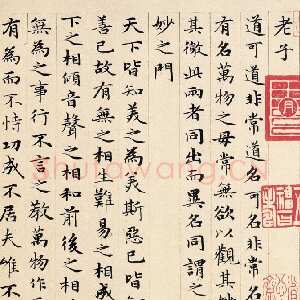 老子
道可道非常道名可名非常名
有名萬物之母常無欲以觀其妙
其徼此兩者同出而異名同謂之
妙之門
天下皆知美之為美斯惡已皆知
善已故有無之相生難易之相成
下之相傾音聲之相和前後之相
無為之事行不言之教萬物作
有為而不恃功成不居夫唯不